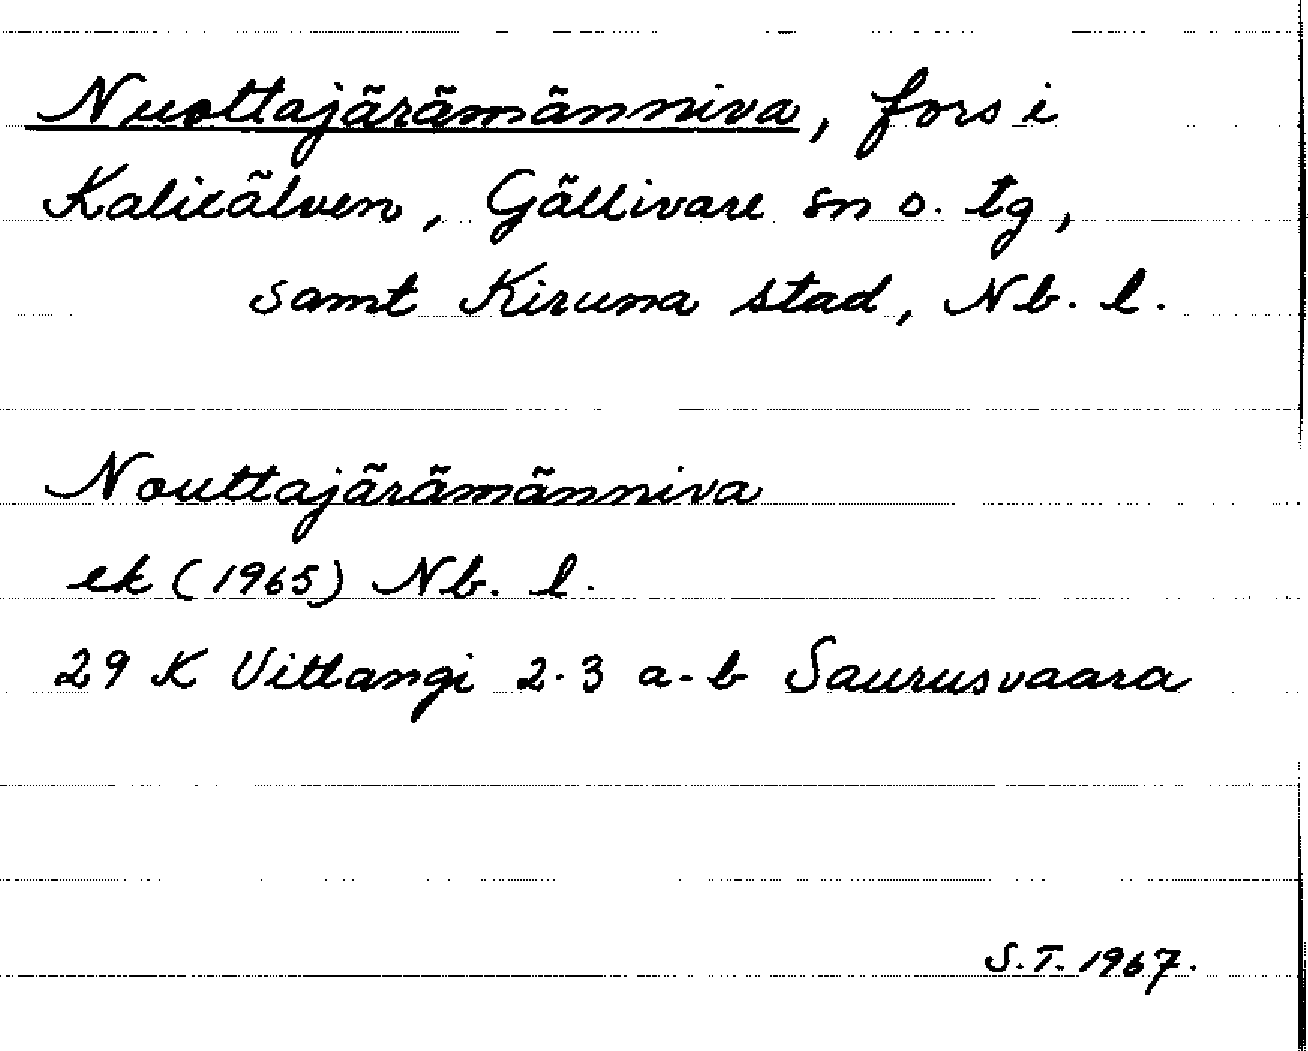 Nuottajärämänniva, fors i
Kalixälven, Gällivare sn o. tg,
samt Kiruna stad, Nb. l.
Nouttajärämänniva
ek (1965) Nb. l.
29 K Vittangi 2-3 a-b Saurusvaara
S.T. 1967.